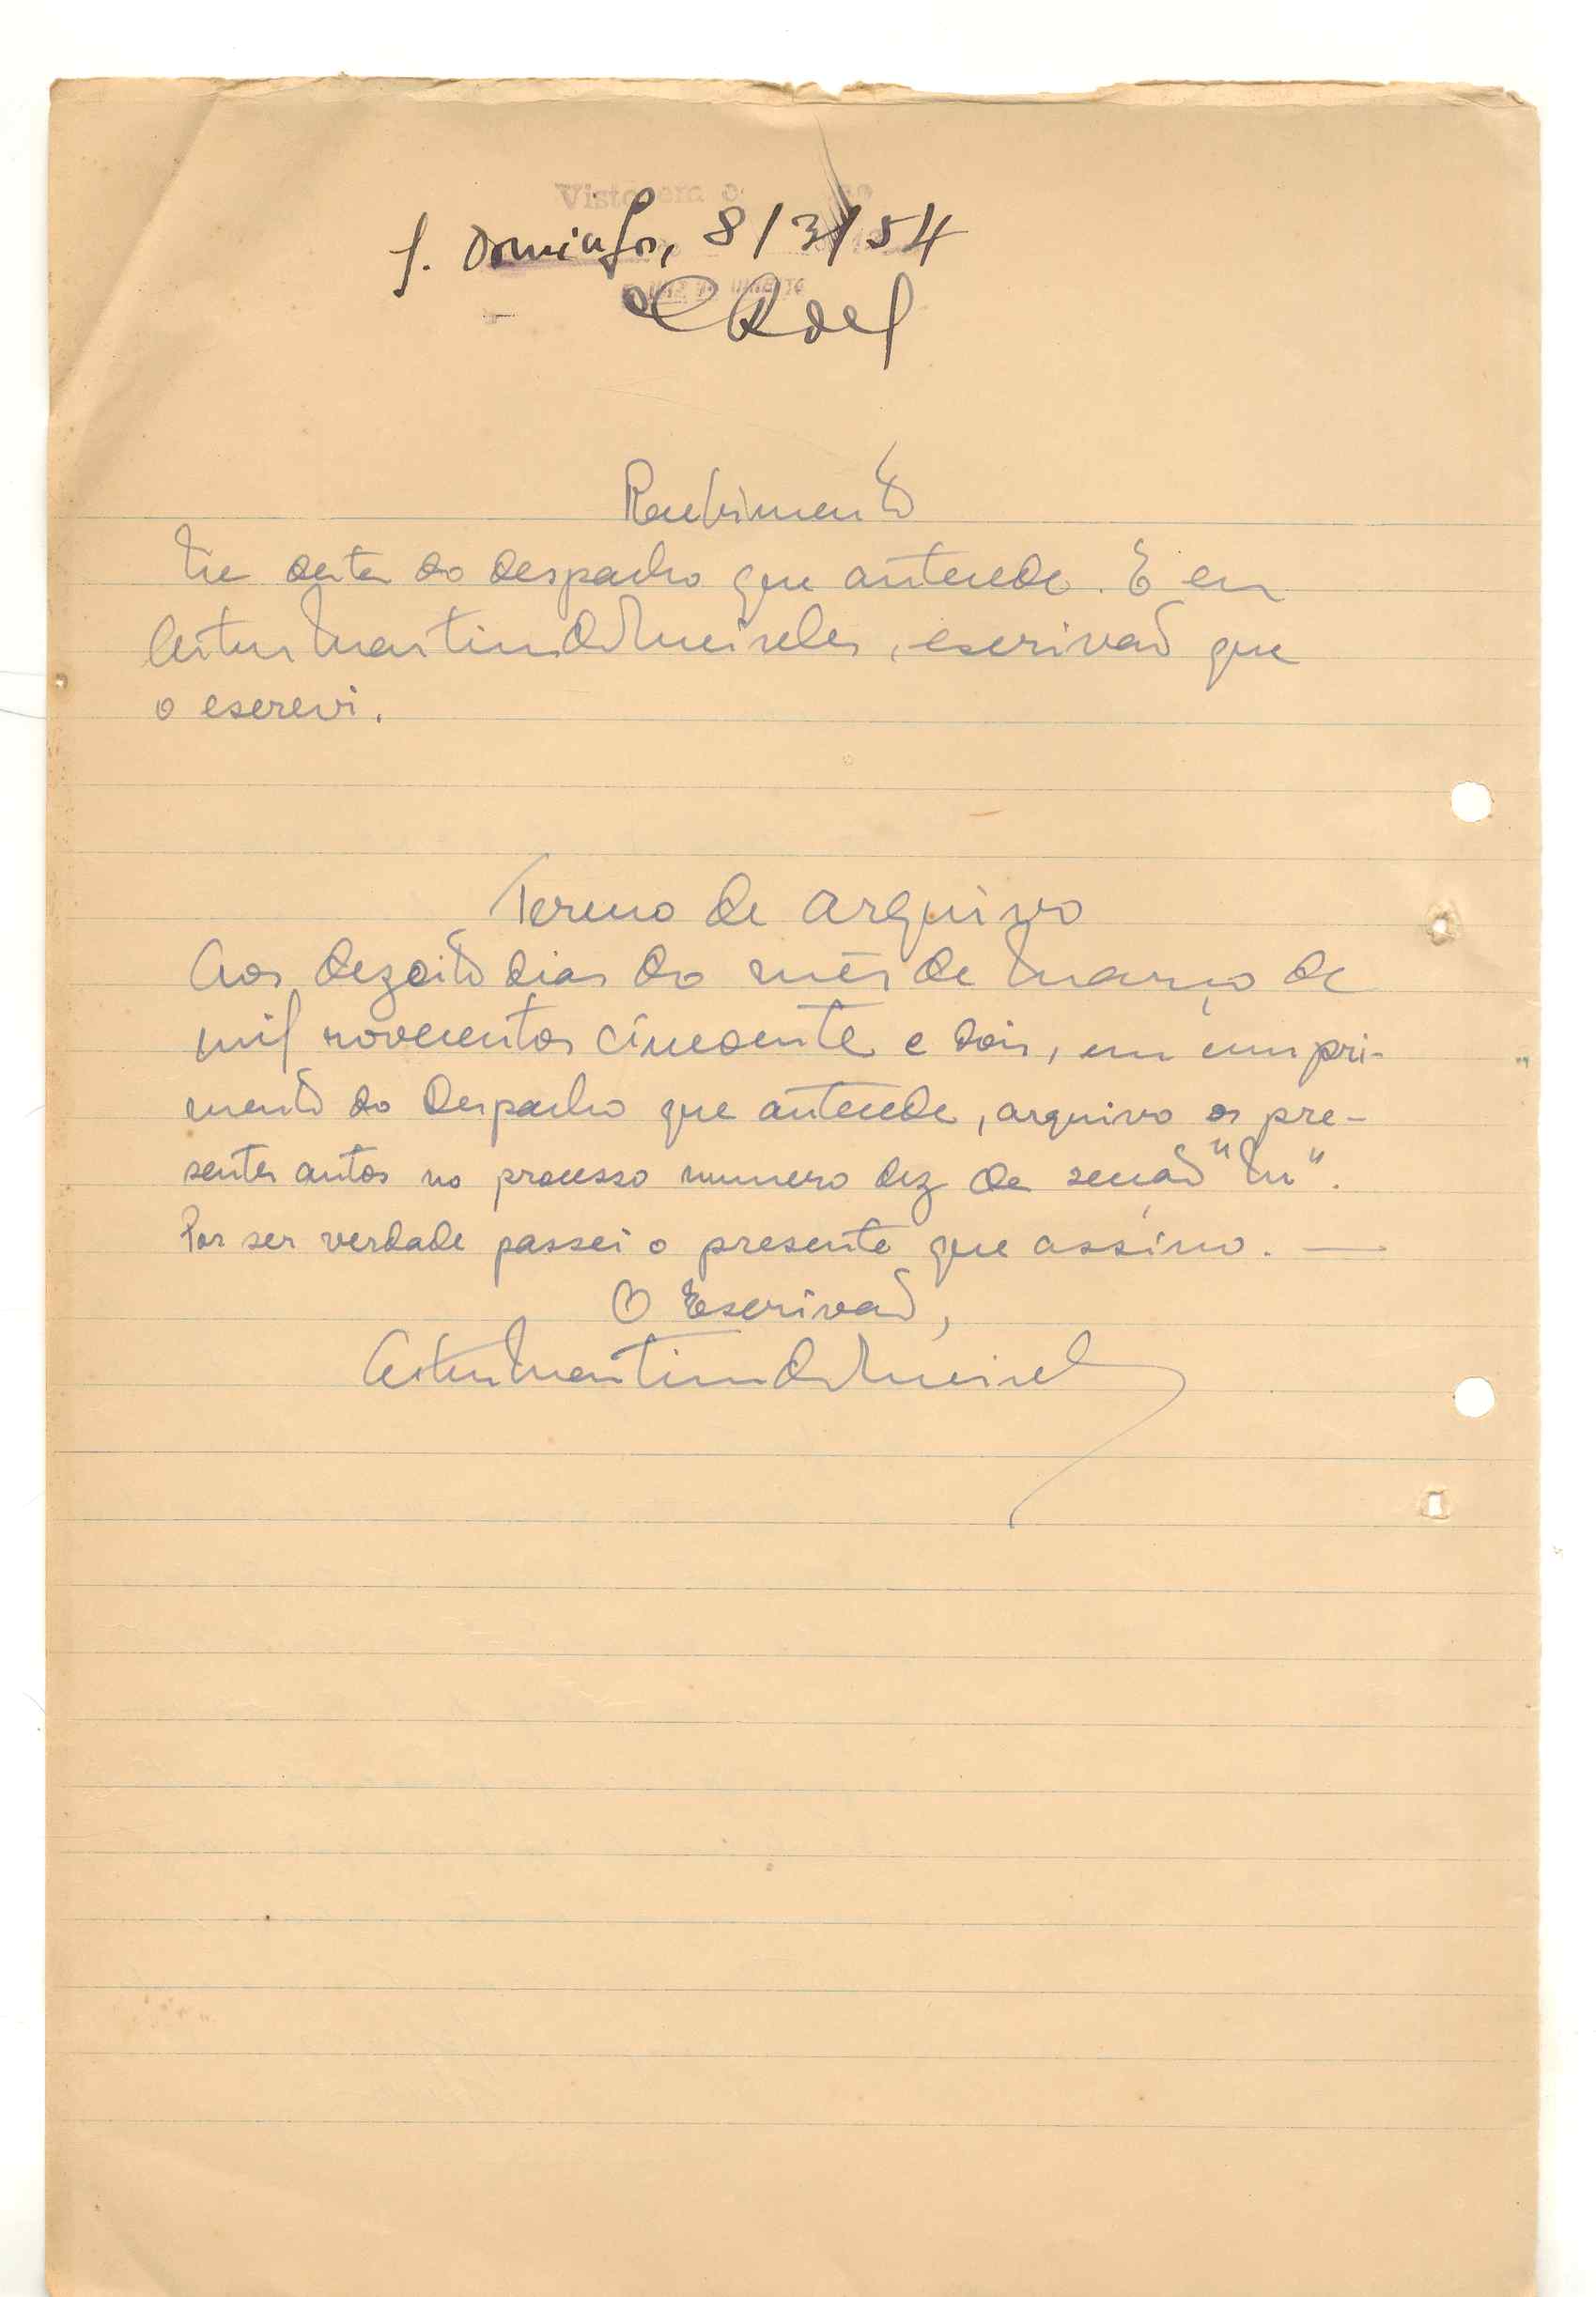 Visto em
S. Domingos, 8/3/54
Recebimento
Na data do despacho que antecede. E eu
Artur Martins de Meireles, escrivão que
o escrevi.
Termo de arquivo
Aos dezoito dias do mês de Março de
mil novecentos cincoenta e dois, em cumpri-
mento do Despacho que antecede, arquivo os pre-
sentes autos no processo numero dez da secção "M".
Por ser verdade passei o presente que assino. —
O Escrivão,
Artur Martins de Meireles